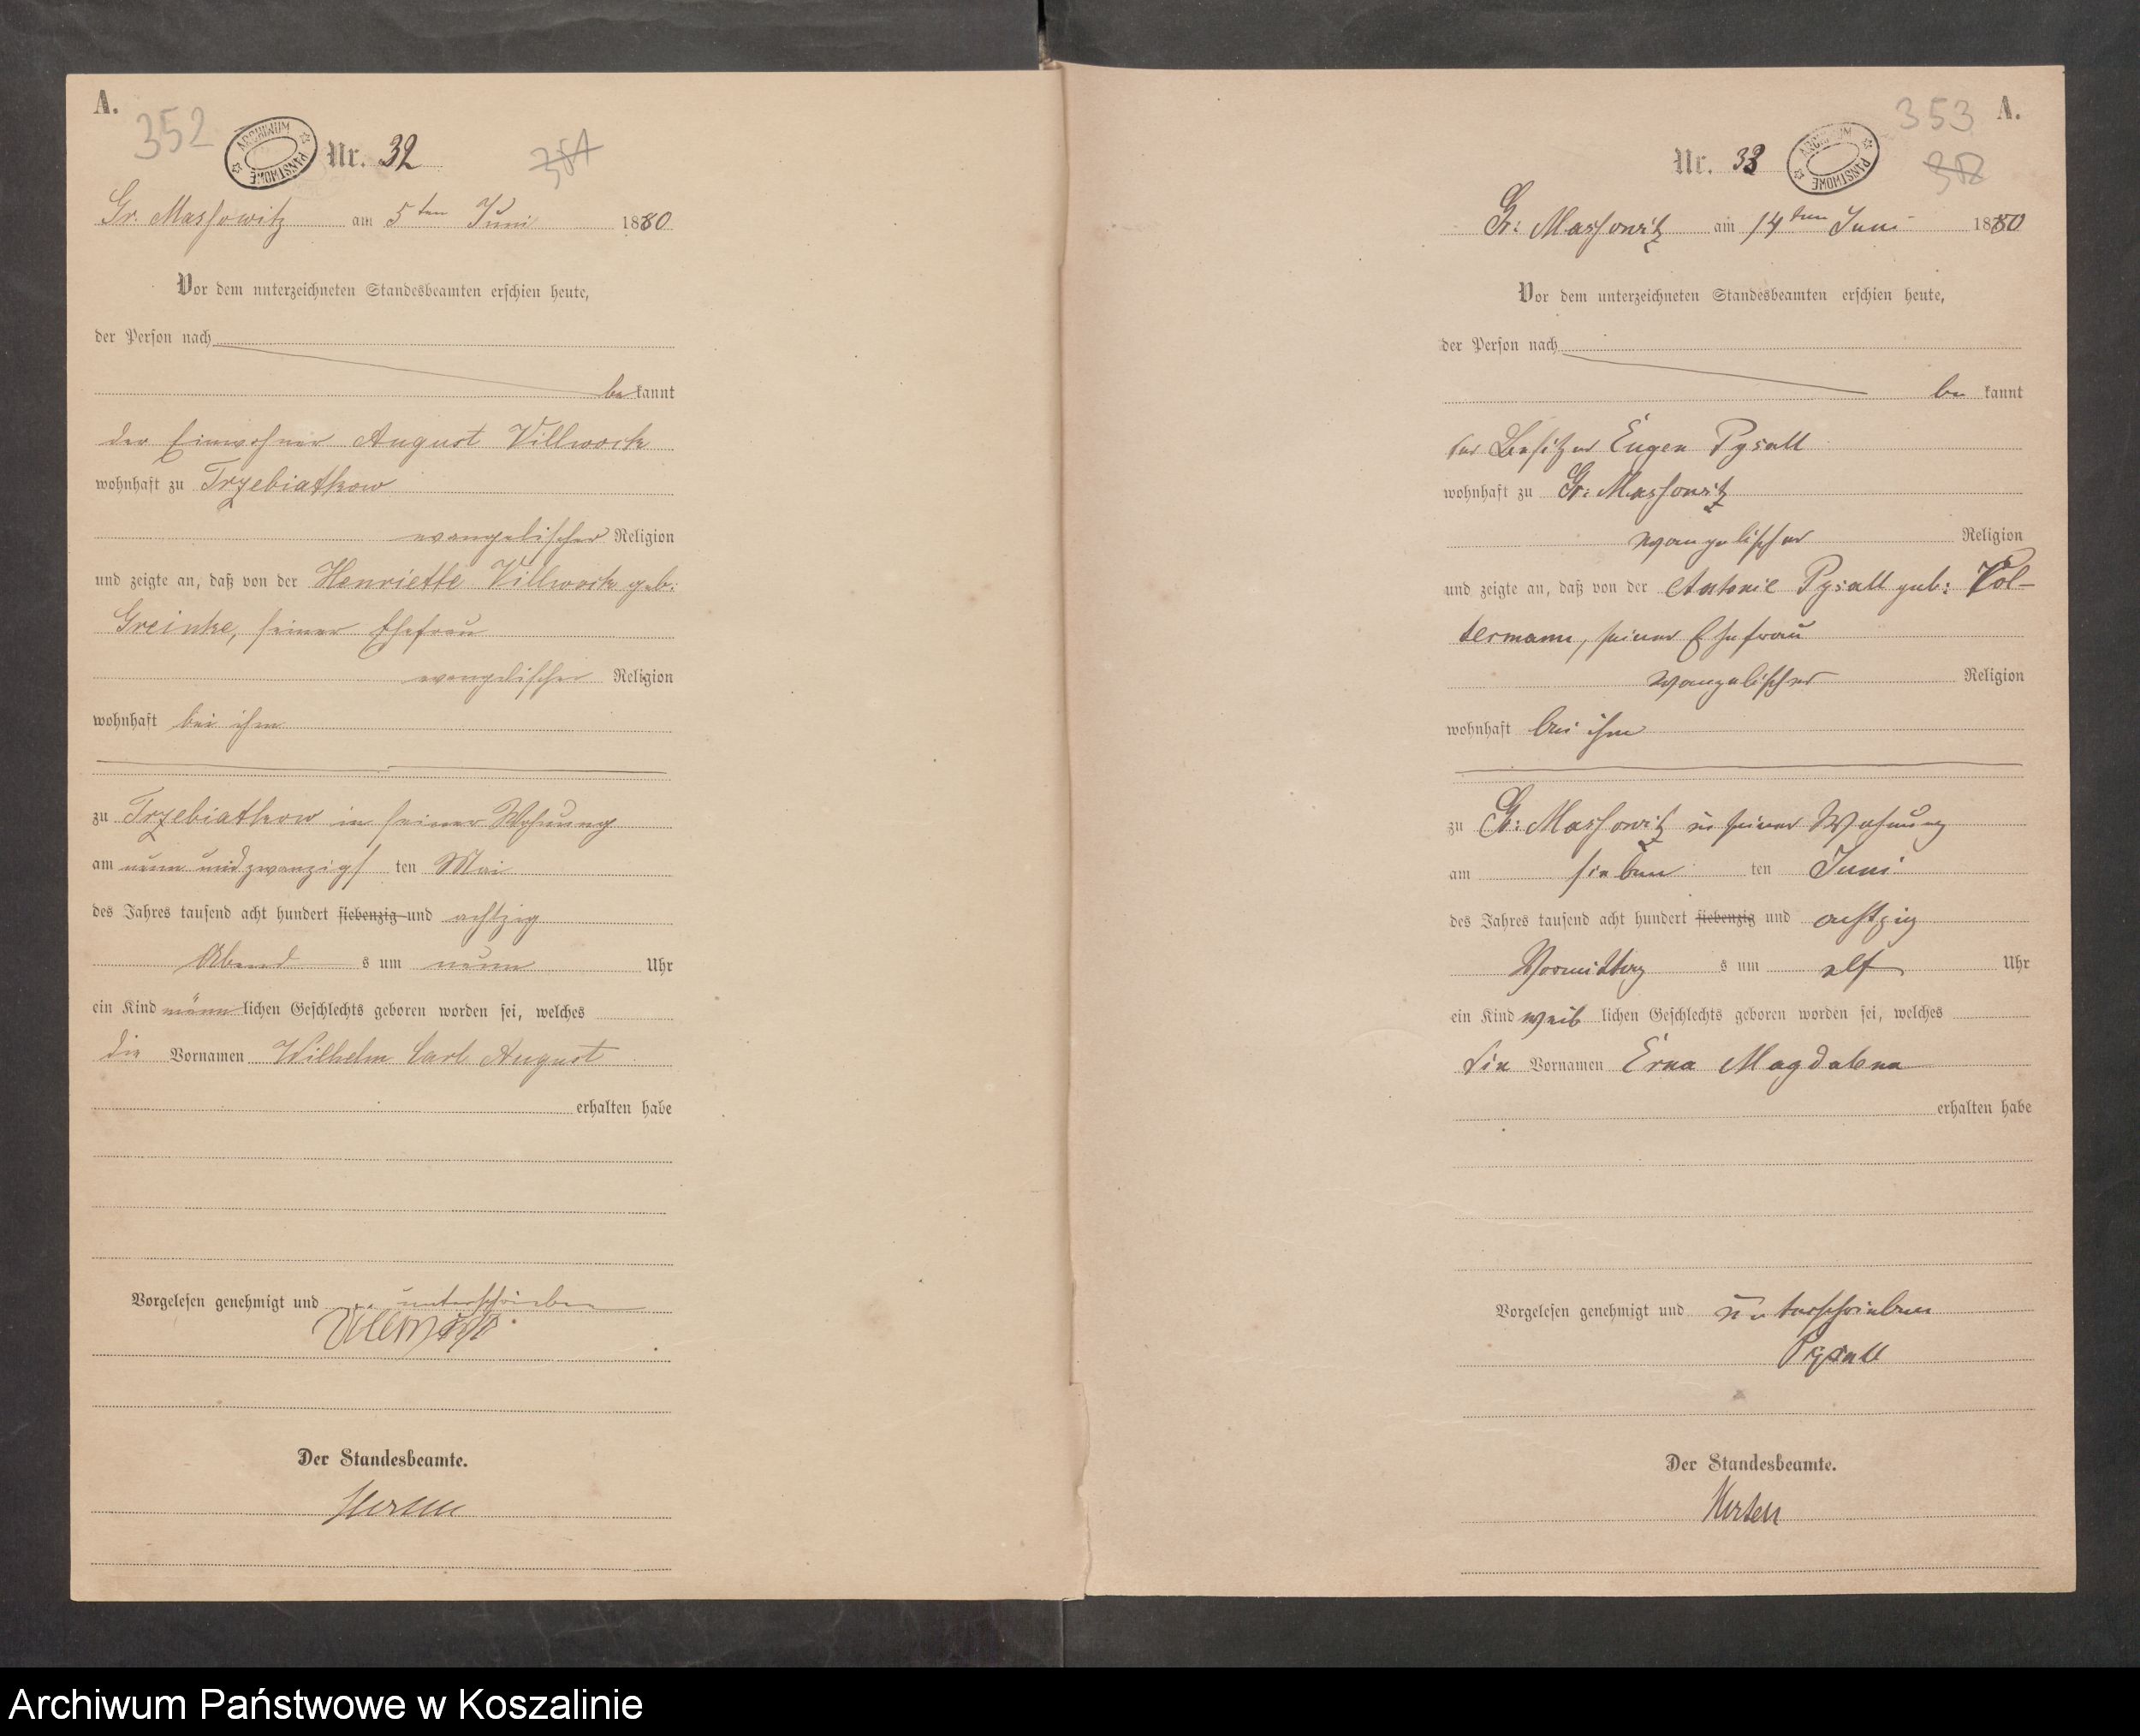 A.
352
ARCHIWUM PAŃSTWOWE
Nr. 32
351
Gr. Massowitz am 5ten Juni 1880
Vor dem unterzeichneten Standesbeamten erschien heute,
der Person nach
bekannt
der Einwohner August Villwock
wohnhaft zu Trzebiatkow
evangelischer Religion
und zeigte an, daß von der Henriette Villwock geb.
Greinke, seiner Ehefrau
evangelischer Religion
wohnhaft bei ihm
zu Trzebiatkow in seiner Wohnung
am neun und zwanzigsten Mai
des Jahres tausend acht hundert siebenzig und achtzig
Abends um neun Uhr
ein Kind männlichen Geschlechts geboren worden sei, welches
die Vornamen Wilhelm Carl August
erhalten habe
Vorgelesen genehmigt und unterschrieben
Villwock
Der Standesbeamte.
353 A.
Nr. 33
ARCHIWUM PAŃSTWOWE
352
Gr: Massowitz am 14ten Juni 1880
Vor dem unterzeichneten Standesbeamten erschien heute,
der Person nach
bekannt
der Besitzer Eugen Pysall
wohnhaft zu Gr: Massowitz
evangelischer Religion
und zeigte an, daß von der Antonie Pysall geb: Pol-
termann, seiner Ehefrau
evangelischer Religion
wohnhaft bei ihm
zu Gr: Massowitz in seiner Wohnung
am sieben ten Juni
des Jahres tausend acht hundert siebenzig und achtzig
Vormittags um elf Uhr
ein Kind weiblichen Geschlechts geboren worden sei, welches
die Vornamen Erna Magdalena
erhalten habe
Vorgelesen genehmigt und unterschrieben
Pysall
Der Standesbeamte.
Archiwum Państwowe w Koszalinie